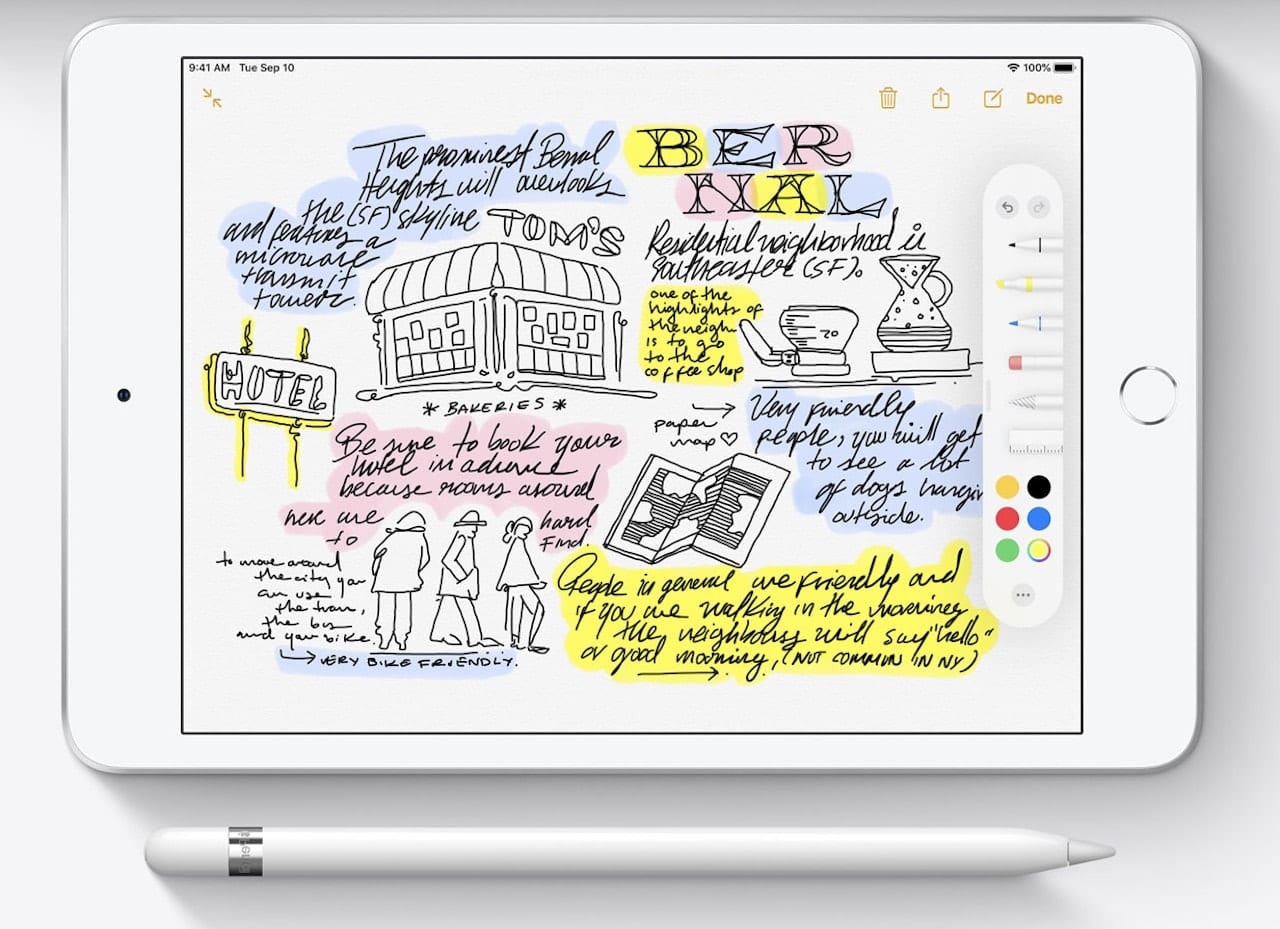 9:41 AM Tue Sep 10
100%
Done
The prominest Bernal
Heights will overlooks
the (SF) skyline
and features a
microware
transmit
tower.
BER
NAL
Residential neighborhood is
southeaster (SF).
TOM'S
one of the
highlights of
the neigh
is to go
to the
coffee shop
20
HOTEL
* BAKERIES *
paper
map
Very friendly
people, you will get
to see a lot
of dogs hangin
outside.
Be sure to book your
hotel in advance
because rooms around
here are hard
to find.
to move around
the city you
can use
the tran,
the bus
and your bike.
VERY BIKE FRIENDLY.
People in general are friendly and
if you are walking in the morning
the neighbours will say "hello"
or good morning, (NOT COMMON IN NY)